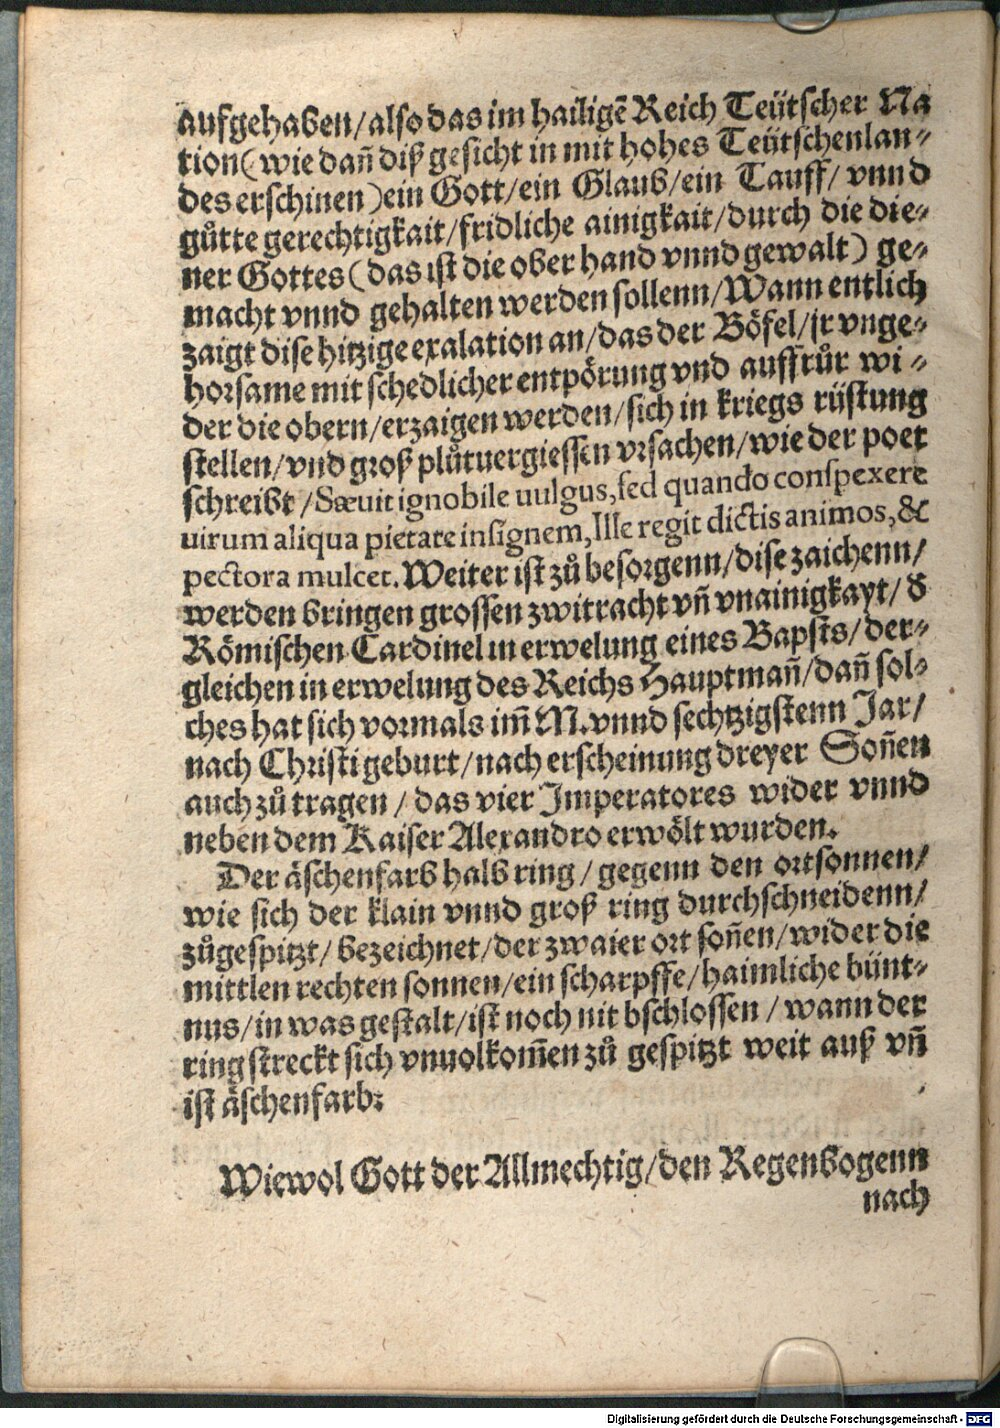 aufgehaben/also das im hailigẽ Reich Teütscher Na
tion(wie dañ diß gesicht in mit hohes Teütschenlan⸗
des erschinen)ein Gott/ein Glaub/ein Tauff/ vnnd
gůtte gerechtigkait/fridliche ainigkait/durch die die⸗
ner Gottes(das ist die ober hand vnnd gewalt) ge⸗
macht vnnd gehalten werden sollenn/Wann entlich
zaigt dise hitzige exalation an/das der Böfel/jr vnge⸗
horsame mit schedlicher entpörung vnd auffrůr wi⸗
der die obern/erzaigen werden/sich in kriegs rüstung
stellen/vnd groß plůtuergiessen vrsachen/wie der poet
schreibt/Sæuit ignobile uulgus,sed quando conspexere
uirum aliqua pietate insignem,Ille regit dictis animos,&
pectora mulcet.Weiter ist zů besorgenn/dise zaichenn/
werden bringen grossen zwitracht vñ vnainigkayt/ d̕
Römischen Cardinel in erwelung eines Bapsts/der⸗
gleichen in erwelung des Reichs Hauptmañ/dañ sol⸗
ches hat sich vormals im̃ M.vnnd sechtzigstenn Jar/
nach Christi geburt/nach erscheinung dreyer Soñen
auch zů tragen/das vier Imperatores wider vnnd
neben dem Kaiser Alexandro erwölt wurden.
Der äschenfarb halb ring/gegenn den ortsonnen/
wie sich der klain vnnd groß ring durchschneidenn/
zůgespitzt/bezeichnet/der zwaier ort soñen/wider die
mittlen rechten sonnen/ein scharpffe/haimliche bünt⸗
nus/in was gestalt/ist noch nit bschlossen/wann der
ring streckt sich vnuolkom̃en zů gespitzt weit auß vñ
ist äschenfarb:
Wiewol Gott der Allmechtig/den Regenbogenn
nach
Digitalisierung gefördert durch die Deutsche Forschungsgemeinschaft - DFG